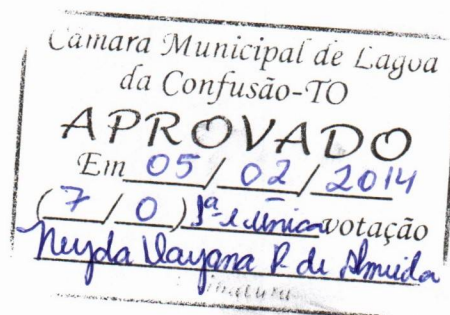 Câmara Municipal de Lagoa
da Confusão-TO
APROVADO
Em 05/02/2014
(7/0) 1ª e única votação
Neyda Dayana R de Almeida